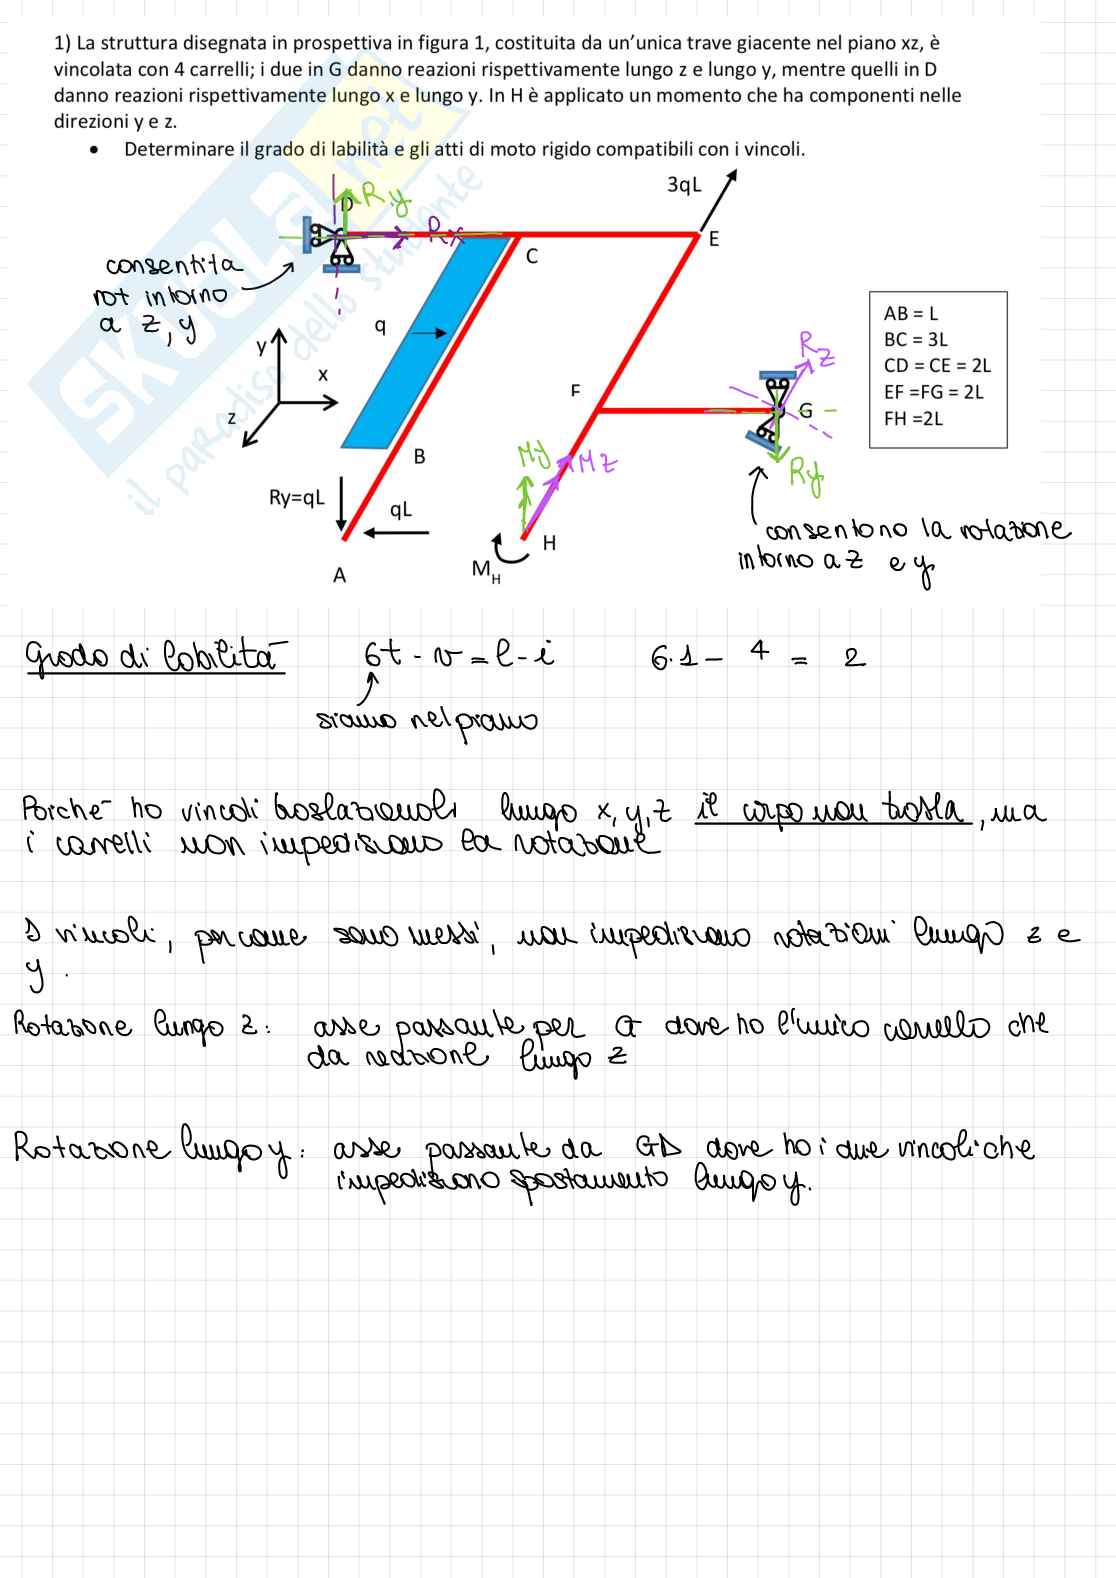 1) La struttura disegnata in prospettiva in figura 1, costituita da un'unica trave giacente nel piano xz, è
vincolata con 4 carrelli; i due in G danno reazioni rispettivamente lungo z e lungo y, mentre quelli in D
danno reazioni rispettivamente lungo x e lungo y. In H è applicato un momento che ha componenti nelle
direzioni y e z.
• Determinare il grado di labilità e gli atti di moto rigido compatibili con i vincoli.
SKUOLA.net
il paradiso dello studente
3qL
D
Ry
Rx
C
E
consentita
rot intorno
a z, y
q
y
x
z
AB = L
BC = 3L
CD = CE = 2L
EF =FG = 2L
FH =2L
Rz
F
G
B
My
Mz
Ry
Ry=qL
qL
H
consentono la rotazione
intorno a z e y
M_H
A
Grado di labilità 6t - v = l - i 6·1 - 4 = 2
siamo nel piano
Poiché ho vincoli traslazionali lungo x, y, z il corpo non trasla, ma
i carrelli non impediscono la rotazione
I vincoli, per come sono messi, non impediscono rotazioni lungo z e
y.
Rotazione lungo z: asse passante per G dove ho l'unico carrello che
da reazione lungo z
Rotazione lungo y: asse passante da GD dove ho i due vincoli che
impediscono spostamento lungo y.